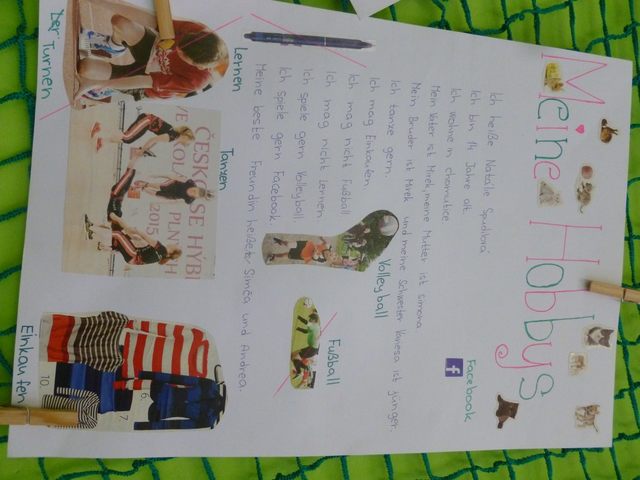 Meine Hobbys
Ich heiße Natálie Spudilová
Ich bin 14 Jahre alt
Ich wohne in chomutice
Mein Vater ist Mirek, meine Mutter ist simona
Mein Bruder ist Mirek und meine Schwester Vanesa ist jünger.
Ich tanze gern.
Ich mag Einkaufen
Ich mag nicht Fußball
Ich mag nicht Lernen
Ich spiele gern Volleyball
Ich spiele gern Facebook
Meine beste Freundin heißeter Simča und Andrea.
Facebook
f
Volleyball
Fußball
Lernen
Tanzen
Der Turnen
Einkaufen
ČESKO SE HÝB
PLN
2015
10.
7.
6.